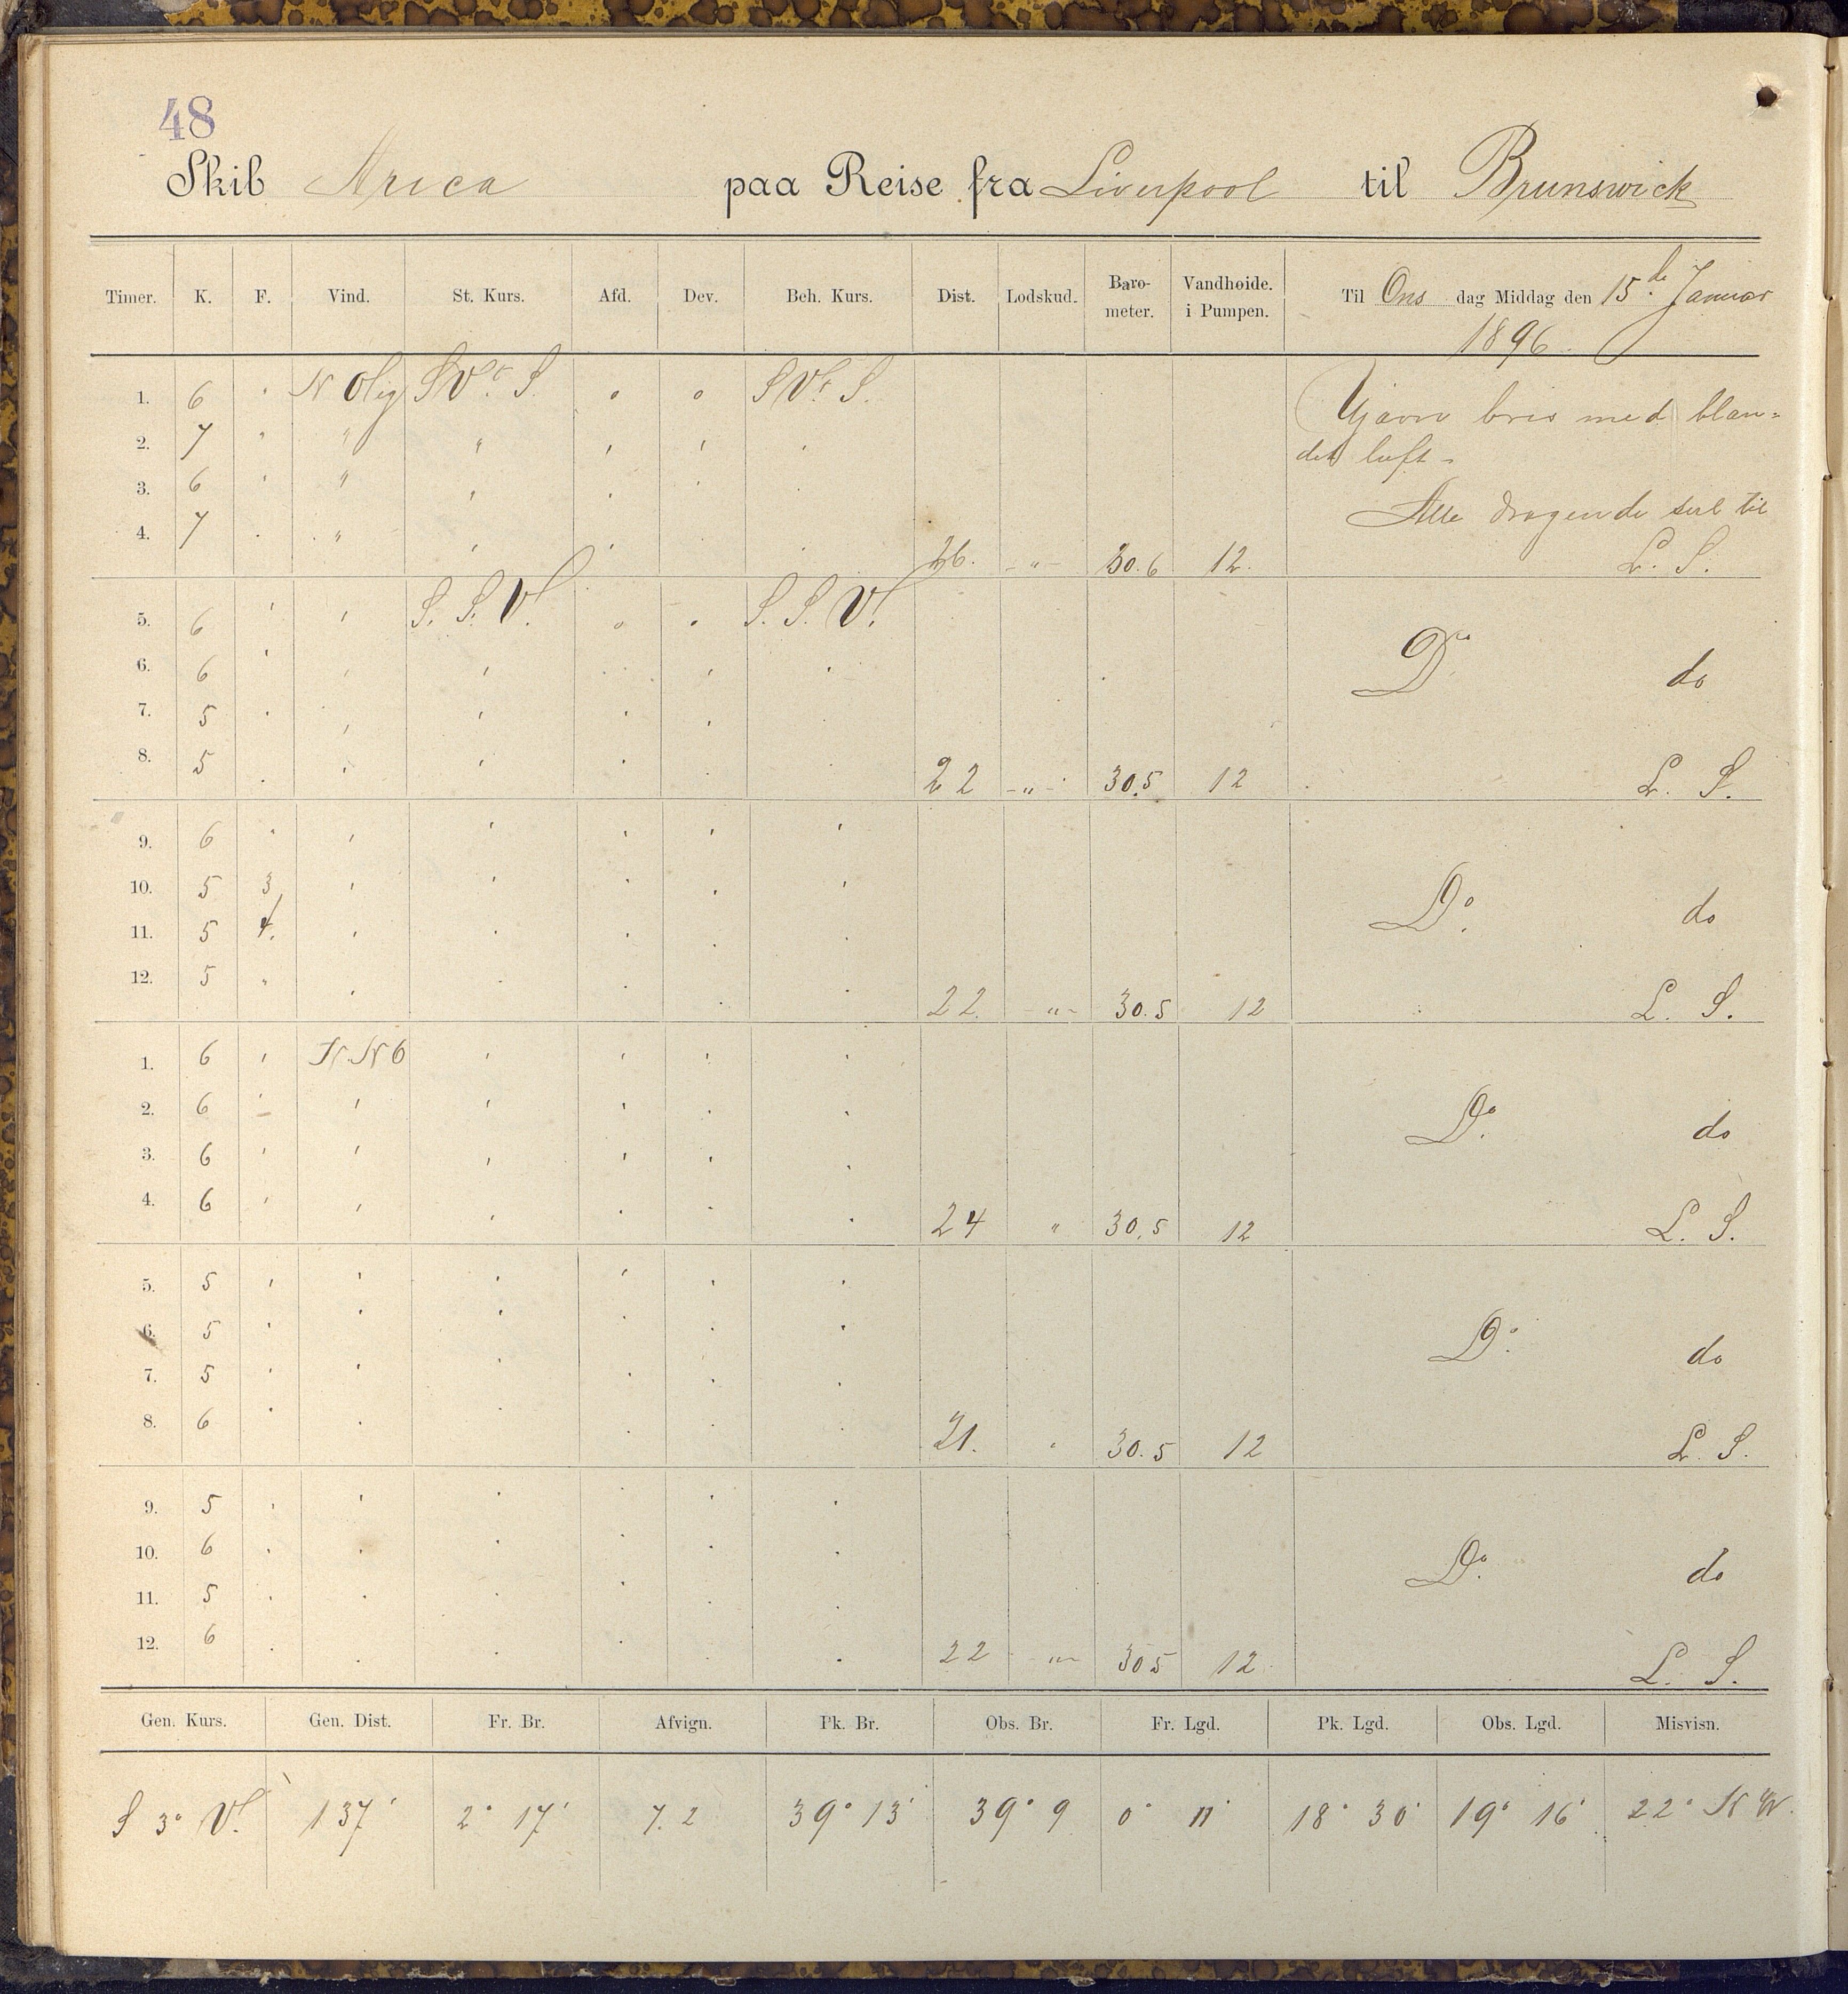 48
Skib Arica paa Reise fra Liverpool til Brunswick
Timer. K. F. Vind. St. Kurs. Afd. Dev. Beh. Kurs. Dist. Lodskud. Baro-meter. Vandhøide. i Pumpen. Til Ons dag Middag den 15de Januar 1896
1. 6 " N Olig SVt. S. o o SVt S. Ujævn bris med blan=
2. 7 " " " " " " det luft -
3. 6 " " " " " " Alle dragende seil til
4. 7 " " " " " " 26. - " - 30.6 12. L. S.
5. 6 " " S. S. V. o o S. S. V.
6. 6 " " " " " " Do do
7. 5 " " " " " "
8. 5 " " " " " " 22 - " - 30.5 12 L. S.
9. 6 " " " " " "
10. 5 3 " " " " " Do. do
11. 5 4. " " " " "
12. 5 " " " " " " 22. - " - 30.5 12 L. S.
1. 6 " N.N O " " " "
2. 6 " " " " " " Do. do
3. 6 " " " " " "
4. 6 " " " " " " 24 " 30.5 12 L. S.
5. 5 " " " " " "
6. 5 " " " " " " Do. do
7. 5 " " " " " "
8. 6 " " " " " " 21. " 30.5 12 L. S.
9. 5 " " " " " "
10. 6 " " " " " " Do. do
11. 5 " " " " " "
12. 6 " " " " " " 22 - " - 305 12 L. S.
Gen. Kurs. Gen. Dist. Fr. Br. Afvign. Pk. Br. Obs. Br. Fr. Lgd. Pk. Lgd. Obs. Lgd. Misvisn.
S 3° V. 137' 2° 17' 7.2 39° 13' 39° 9 0° 11' 18° 30' 19° 16' 22° N W.